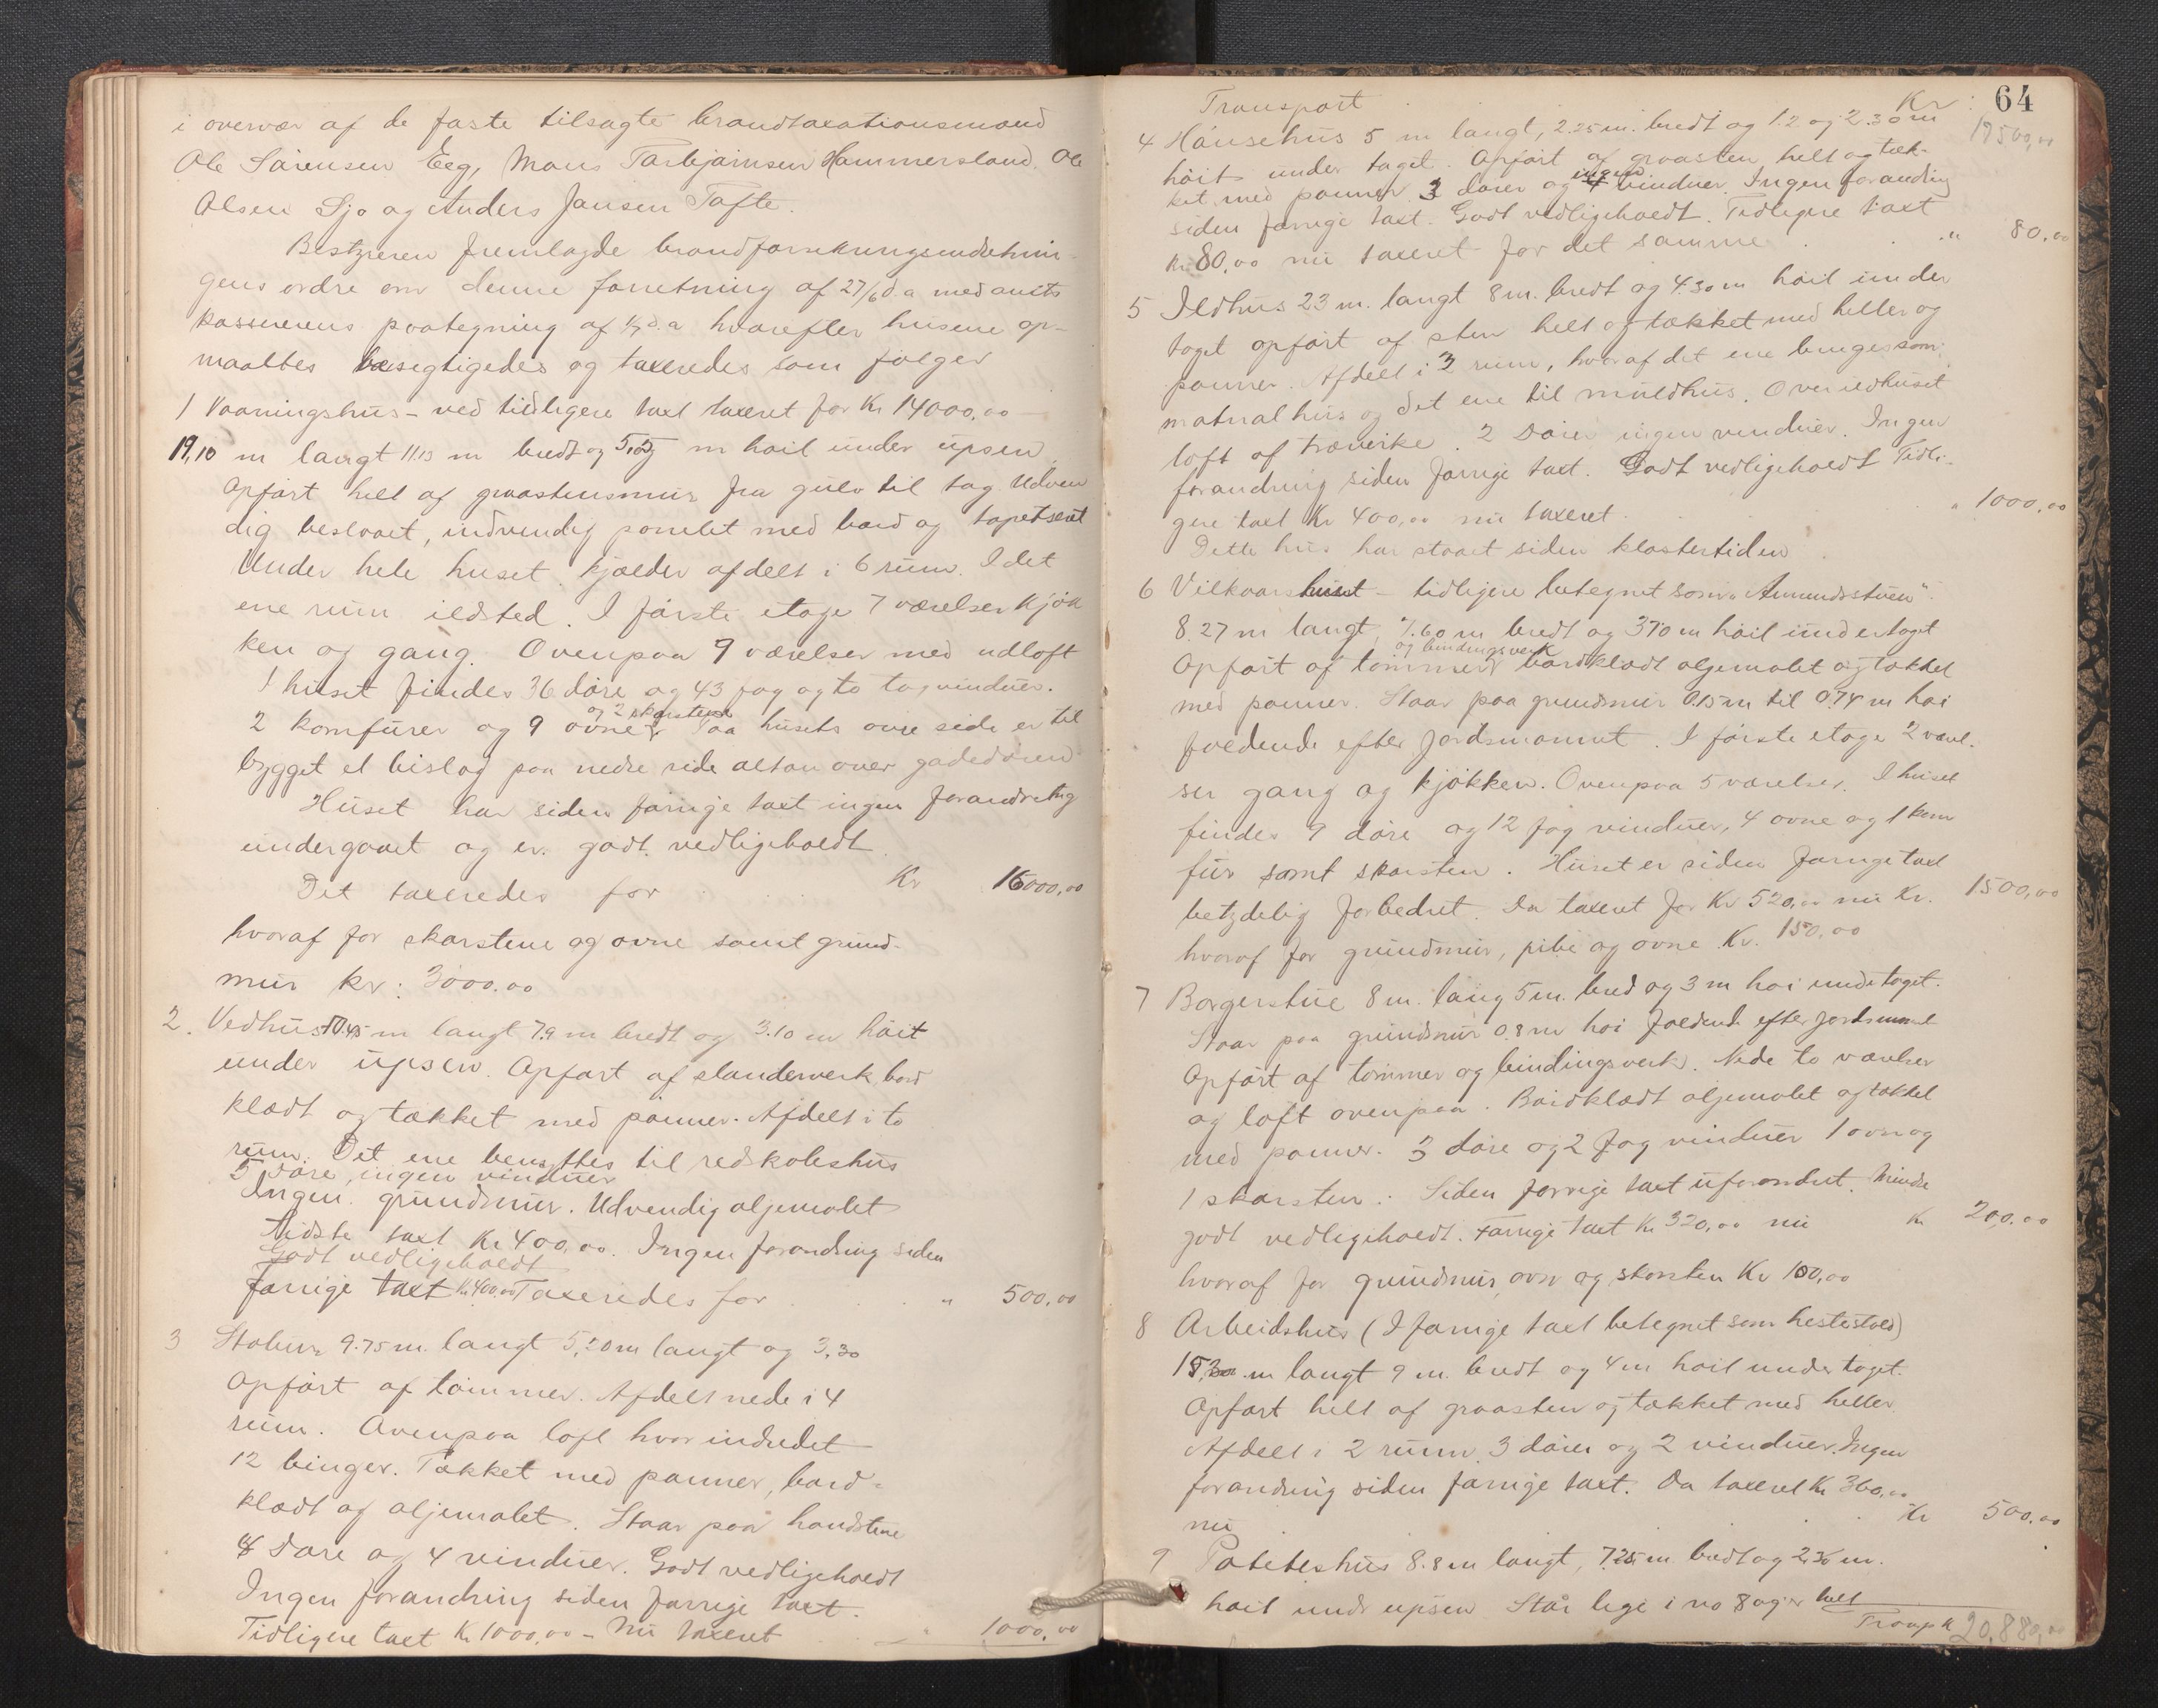 i overvær af de faste tilsagte brandtaxationsmænd
Ole Sørensen Eeg, Mons Torbjørnsen Hammersland, Ole
Olsen Sjo og Anders Jansen Tofte.
Bestyreren fremlagde brandforsikringsindretnin-
gens ordre om denne forretning af 27/6 d.a med amts
kassererens paategning af 1/7 d.a hvorefter husene op-
maaltes besegtigedes og taxeredes som følger
1 Vaaningshus - ved tidligere taxt taxeret for Kr 14000,00
19,10 m langt 11.13 m bredt og m høit under upsen
Opført helt af graastensmur fra gulv til tag. Udven
dig beslaaet, indvendig panelet med bord og tapetseret
Under hele huset kjælder afdelt i 6 rum. I det
ene rum ildsted. I første etage 7 værelser kjøk
ken og gang. Ovenpaa 9 værelser med udloft
I huset findes 36 døre og 43 fag og to tagvinduer.
2 komfurer og 9 ovner og 2 skorstene Paa husets øvre side er til
bygget et bislag paa nedre side altan over gadedøren
Huset har siden forrige taxt ingen forandring
undergaaet og er godt vedligeholdt
Det taxeredes for Kr 16000,00
hvoraf for skorstene og ovne samt grund-
mur kr: 3000.00
2. Vedhus 10.45 m langt 7.9 m bredt og 3.10 m høit
under upsen. Opført af standerverk, bord
klædt og tækket med panner. Afdelt i to
rum. Det ene benyttes til redskabshus
5 døre, ingen vinduer
Ingen grundmur. Udvendig oljemalet
sidste taxt Kr 400,00. Ingen forandring siden
Godt vedligeholdt
forrige taxt Kr 400,00 Taxeredes for " 500,00
3 Stabur 9.75 m. langt 5,20 m langt og 3,30
Opført af tømmer. Afdelt nede i 4
rum. Ovenpaa loft hvor indredet
12 binger. Tækket med panner, bord-
klædt og oljemalet. Staar paa handstene
8 døre og 4 vinduer. Godt vedligeholdt
Ingen forandring siden forrige taxt.
Tidligere taxt Kr 1000,00 - Nu taxeret 1000,00
64
Transport Kr: 17500,00
4 Hønsehus 5 m langt, 2.25 m. bredt og 1.2 og 2.30 m
høit under taget. Opført af graasten helt og tæk-
ket med panner 3 dører og ingen vinduer. Ingen forandring
siden forrige taxt. Godt vedligeholdt. Tidligere taxt
Kr 80,00 nu taxeret for det samme " 80,00
5 Ildhus 23 m. langt 8 m. bredt og 4.30 m høit under
taget opført af sten helt og tækket med heller og
panner. Afdelt i 3 rum, hvoraf det ene bruges som
matrialhus og det ene til muldhus. Over ildhuset
loft af træverke. 2 Dører ingen vinduer. Ingen
forandring siden forrige taxt. Godt vedligeholdt Tidli-
gere taxt Kr 400,00 nu taxeret " 1000,00
Dette hus har staaet siden klostertiden
6 Vilkaarshuset - tidligere betegnet som "Amundsstuen".
8.27 m langt, 7.60 m bredt og 370 m høit under taget
Opført af tømmer og bindingsverk bordklædt oljemalet og tækket
med panner. Staar paa grundmur 0.15 m til 0.74 m høi
faldende efter jordsmonnet. I første etage 2 værel-
ser gang og kjøkken. Ovenpaa 5 værelser. I huset
findes 9 døre og 12 fag vinduer, 4 ovne og 1 kom
fur samt skorsten. Huset er siden forrige taxt
betydelig forbedret. Da taxeret for Kr 520,00 nu Kr. 1500,00
hvoraf for grundmur, pibe og ovne Kr. 150,00
7 Borgerstue 8 m. lang 5 m. bred og 3 m høi under taget.
Staar paa grundmur 0.8 m høi faldende efter jordsmonnet
Opført af tømmer og bindingsverk. Nede to værelser
og loft ovenpaa. Bordklædt oljemalet og tækket
med panner. 3 døre og 2 fag vinduer 1 ovn og
1 skorsten. Siden forrige taxt uforandret. Mindre
godt vedligeholdt. Forrige taxt Kr 320,00 nu Kr 200.00
hvoraf for grundmur, ovn og skorsten Kr 100,00
8 Arbeidshus (I forrige taxt betegnet som hestestald)
m langt 9 m. bredt og 4 m høit under taget.
Opført helt af graasten og tækket med heller
Afdelt i 2 rum. 3 dører og 2 vinduer. Ingen
forandring siden forrige taxt. Da taxeret Kr 360,00
nu Kr 500.00
9 Poteteshus 8.8 m langt, 7.25 m bredt og 2,30 m.
høit under upsen Står lige i no 8 og er helt
Transp k 20,880,00